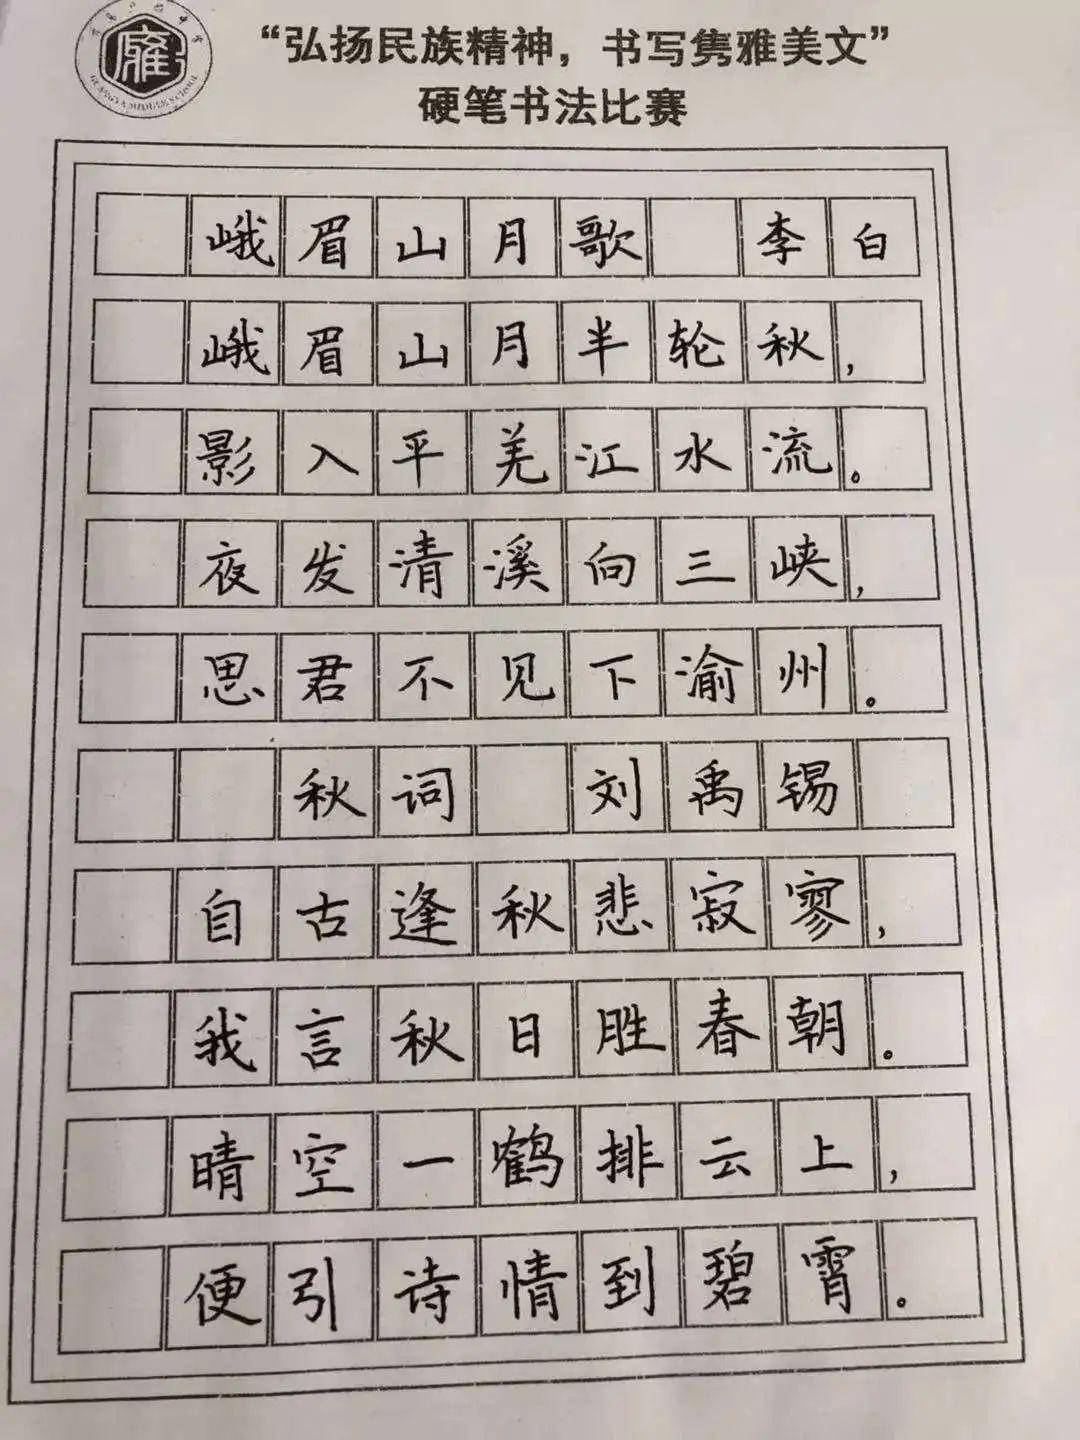 “弘扬民族精神，书写隽雅美文”
硬笔书法比赛
峨眉山月歌 李白
峨眉山月半轮秋，
影入平羌江水流。
夜发清溪向三峡，
思君不见下渝州。
秋词 刘禹锡
自古逢秋悲寂寥，
我言秋日胜春朝。
晴空一鹤排云上，
便引诗情到碧霄。